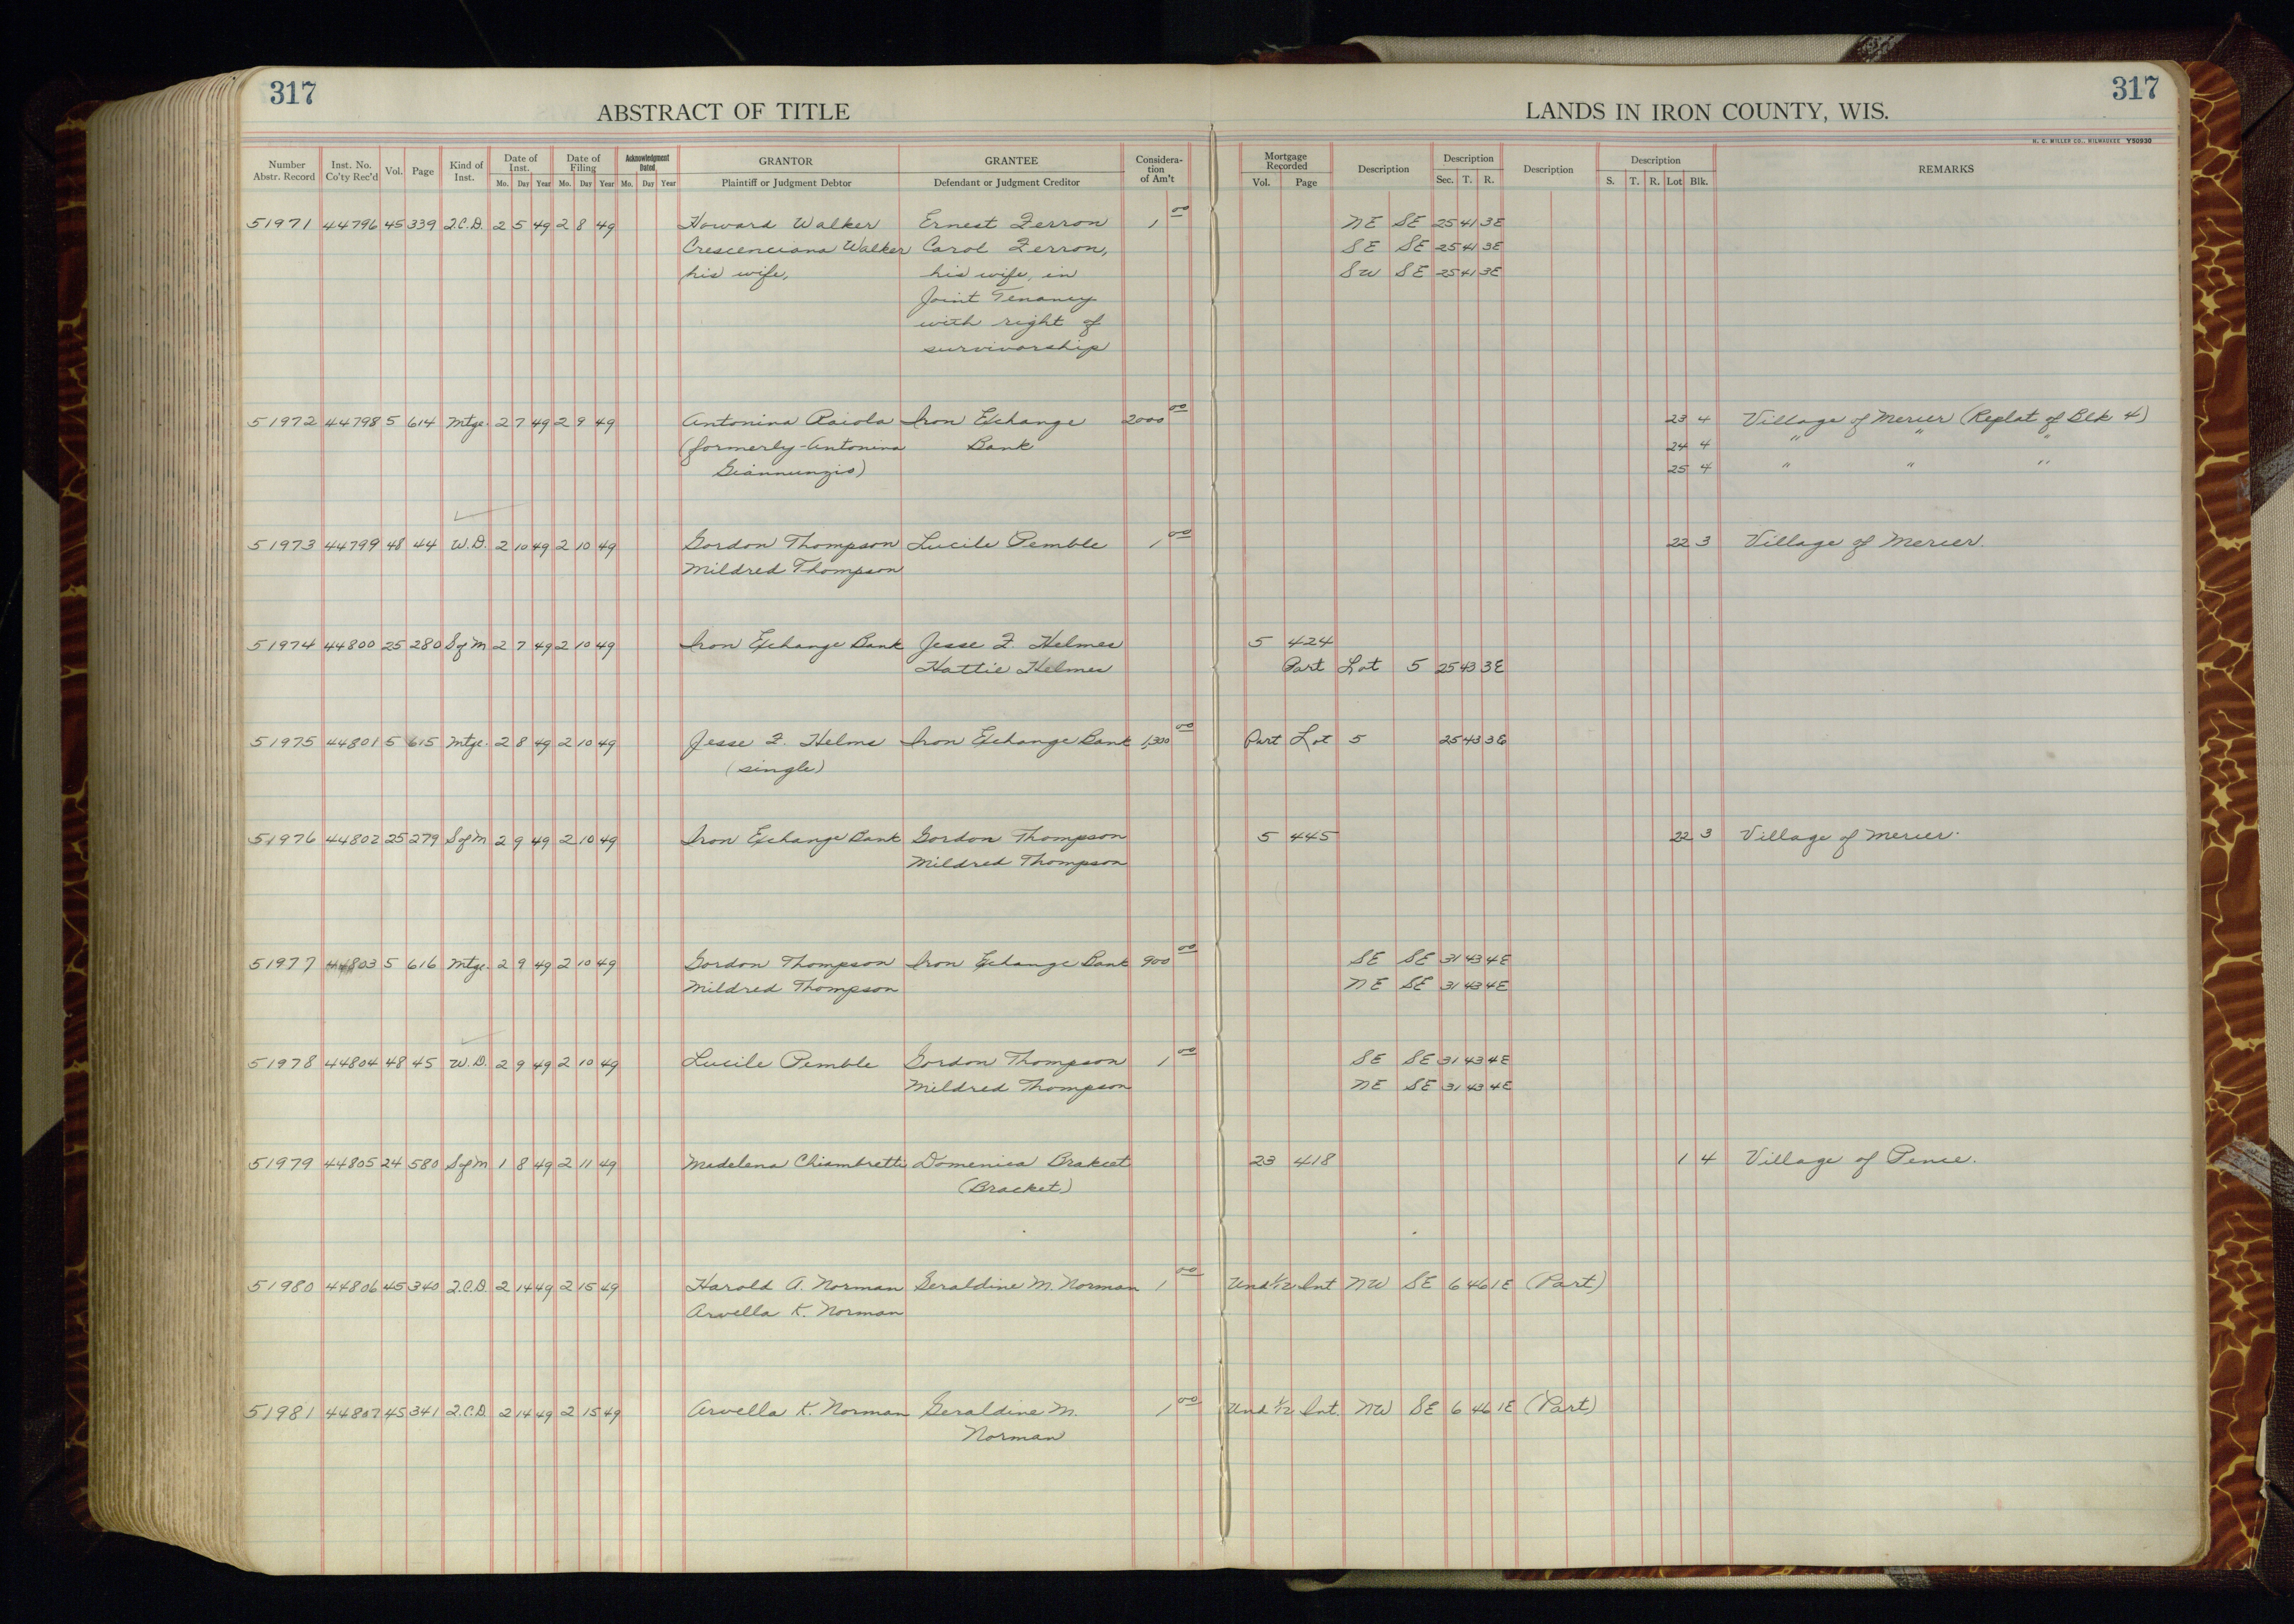 317
317
ABSTRACT OF TITLE
LANDS IN IRON COUNTY, WIS.
H. C. MILLER CO., MILWAUKEE Y50930
Number Abstr. Record | Inst. No. Co'ty Rec'd | Vol. | Page | Kind of Inst. | Date of Inst. Mo. Day Year | Date of Filing Mo. Day Year | Acknowledgment Dated Mo. Day Year | GRANTOR Plaintiff or Judgment Debtor | GRANTEE Defendant or Judgment Creditor | Consideration of Am't | Mortgage Recorded Vol. Page | Description | Description Sec. T. R. | Description | Description S. T. R. Lot Blk. | REMARKS
51971 44796 45 339 Q.C.D. 2 5 49 2 8 49 Howard Walker Ernest Zerron 1 00 NE SE 25 41 3E
Crescenciana Walker Carol Zerron, SE SE 25 41 3E
his wife, his wife, in SW SE 25 41 3E
Joint Tenancy
with right of
survivorship
51972 44798 5 614 Mtge. 2 7 49 2 9 49 Antonina Raiola Iron Exchange 2000 00 23 4 Village of Mercer (Replat of Blk 4)
(formerly-Antonina Bank 24 4 " " "
Giannunzio) 25 4 " " "
51973 44799 48 44 W.D. 2 10 49 2 10 49 Gordon Thompson Lucile Pemble 1 00 22 3 Village of Mercer.
Mildred Thompson
51974 44800 25 280 S of M 2 7 49 2 10 49 Iron Exchange Bank Jesse F. Helmes 5 424
Hattie Helmes Part Lot 5 25 43 3E
51975 44801 5 615 Mtge. 2 8 49 2 10 49 Jesse F. Helms Iron Exchange Bank 1,300 00 Part Lot 5 25 43 3E
(single)
51976 44802 25 279 S of M 2 9 49 2 10 49 Iron Exchange Bank Gordon Thompson 5 445 22 3 Village of Mercer.
Mildred Thompson
51977 44803 5 616 Mtge. 2 9 49 2 10 49 Gordon Thompson Iron Exchange Bank 900 00 SE SE 31 43 4E
Mildred Thompson NE SE 31 43 4E
51978 44804 48 45 W.D. 2 9 49 2 10 49 Lucile Pemble Gordon Thompson 1 00 SE SE 31 43 4E
Mildred Thompson NE SE 31 43 4E
51979 44805 24 580 S of M 1 8 49 2 11 49 Madelena Chiambretti Domenica Brakcet 23 418 1 4 Village of Pence.
(Bracket)
51980 44806 45 340 Q.C.D. 2 14 49 2 15 49 Harold A. Norman Geraldine M. Norman 1 00 Und 1/2 Int NW SE 6 46 1E (Part)
Arvella K. Norman
51981 44807 45 341 Q.C.D. 2 14 49 2 15 49 Arvella K. Norman Geraldine M. 1 00 Und 1/2 Int. NW SE 6 46 1E (Part)
Norman